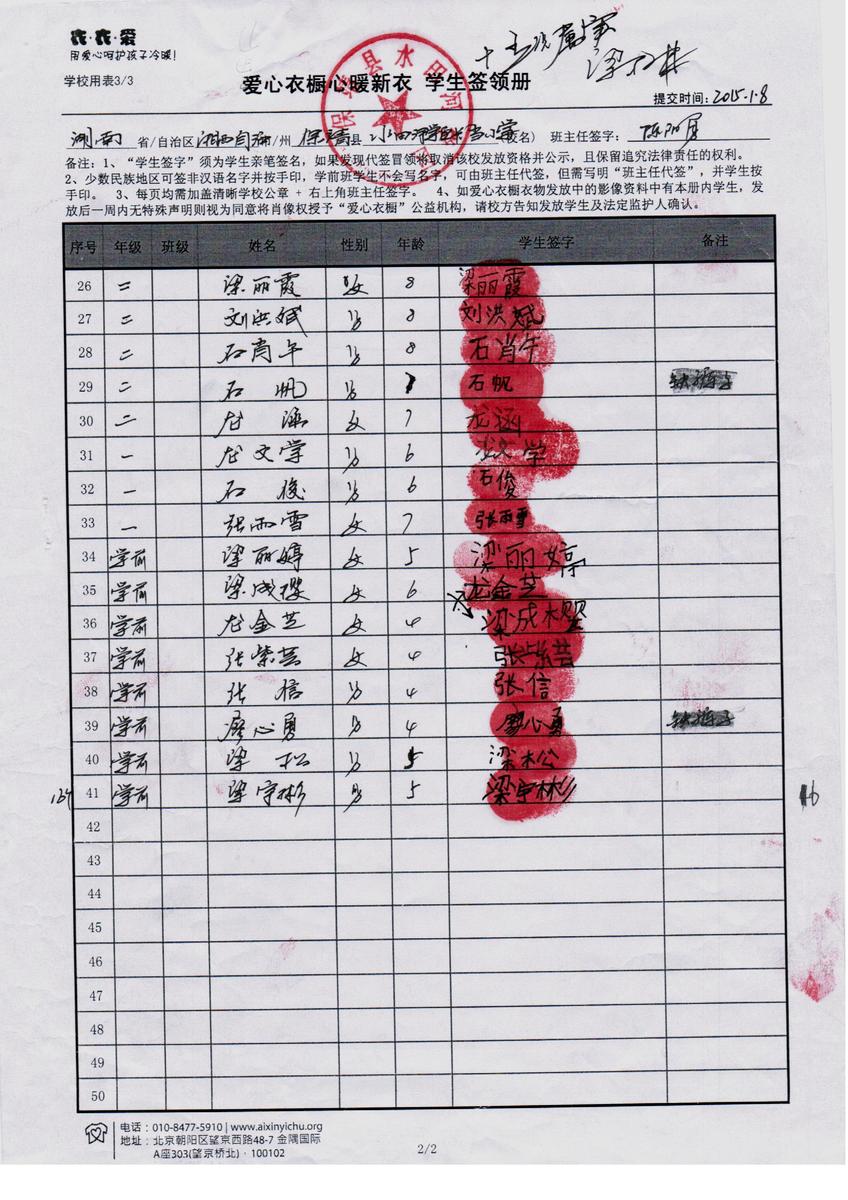 衣·衣·爱
用爱心呵护孩子冷暖!
学校用表3/3
爱心衣橱心暖新衣 学生签领册
提交时间:2015.1.8
湖南 省/自治区 湘西自治 /州 保靖 县 (校名) 班主任签字:
备注:1、“学生签字”须为学生亲笔签名,如果发现代签冒领将取消该校发放资格并公示,且保留追究法律责任的权利。
2、少数民族地区可签非汉语名字并按手印,学前班学生不会写名字,可由班主任代签,但需写明“班主任代签”,并学生按
手印。 3、每页均需加盖清晰学校公章 + 右上角班主任签字。 4、如爱心衣橱衣物发放中的影像资料中有本册内学生,发
放后一周内无特殊声明则视为同意将肖像权授予“爱心衣橱”公益机构,请校方告知发放学生及法定监护人确认。
序号 年级 班级 姓名 性别 年龄 学生签字 备注
26 二 梁丽霞 女 8 梁丽霞
27 二 刘洪斌 男 8 刘洪斌
28 二 石肖午 男 8 石肖午
29 二 石帆 男 7 石帆
30 二 龙涵 女 7 龙涵
31 一 龙文学 男 6 龙文学
32 一 石俊 男 6 石俊
33 一 张雨雪 女 7 张雨雪
34 学前 梁丽婷 女 5 梁丽婷
35 学前 梁成樱 女 6 龙金芝
36 学前 龙金芝 女 4 梁成樱
37 学前 张紫芸 女 4 张紫芸
38 学前 张信 男 4 张信
39 学前 廖心勇 男 4 廖心勇
40 学前 梁松 男 5 梁松
41 学前 梁宇彬 男 5 梁宇彬
42
43
44
45
46
47
48
49
50
电话:010-8477-5910 | www.aixinyichu.org
地址:北京朝阳区望京西路48-7 金隅国际
A座303(望京桥北)·100102
2/2